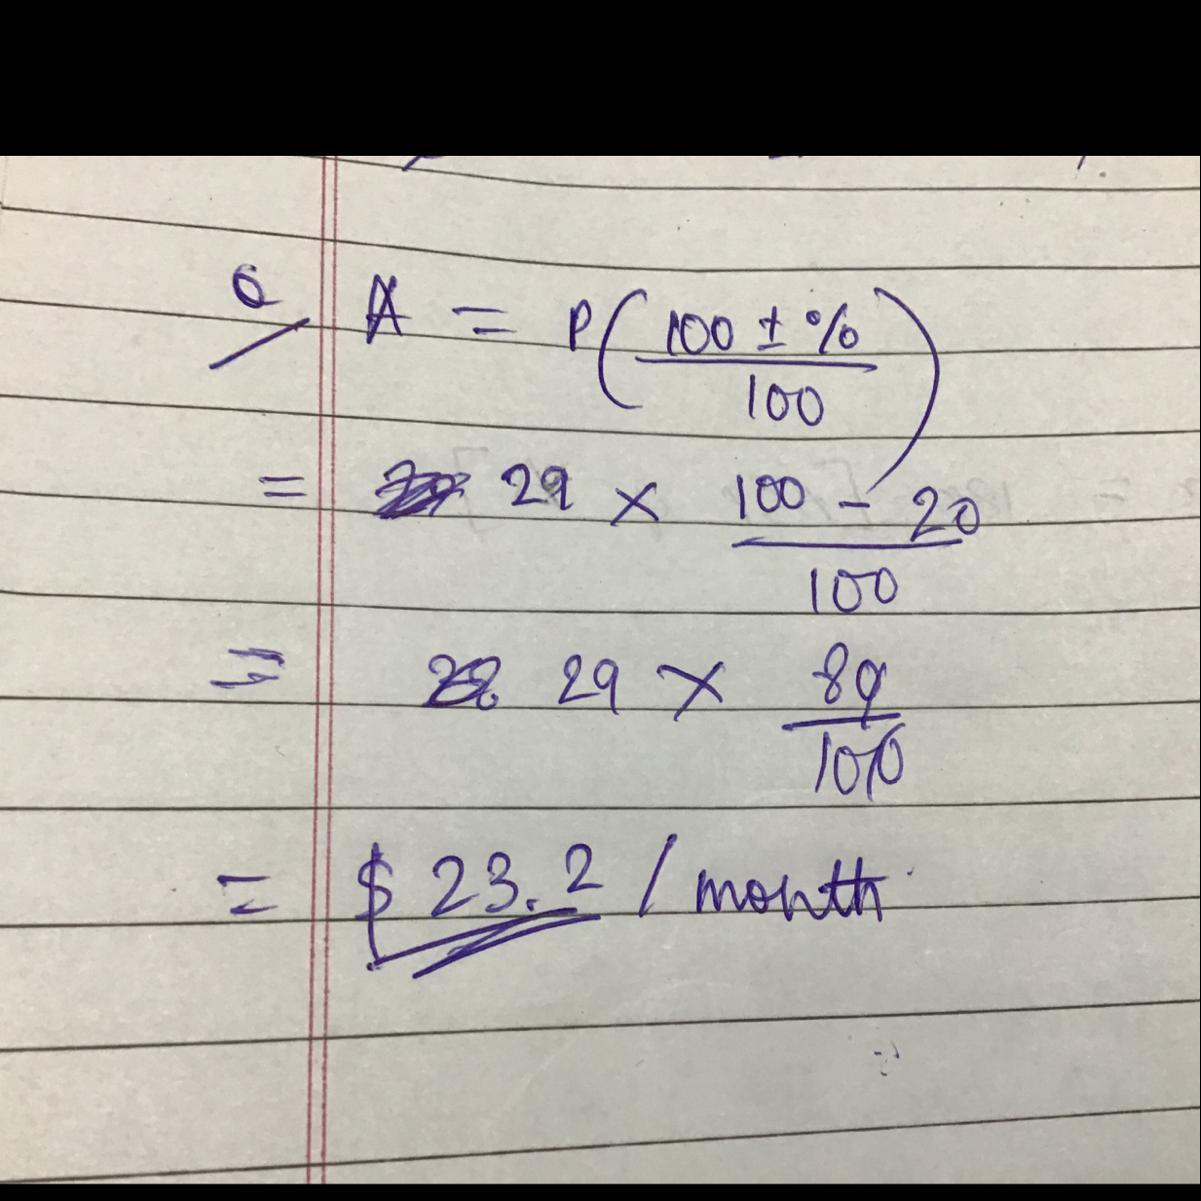 Q A = P(100 ± % / 100)
= 29 × 100 - 20 / 100
= 29 × 80 / 100
= $ 23.2 / month